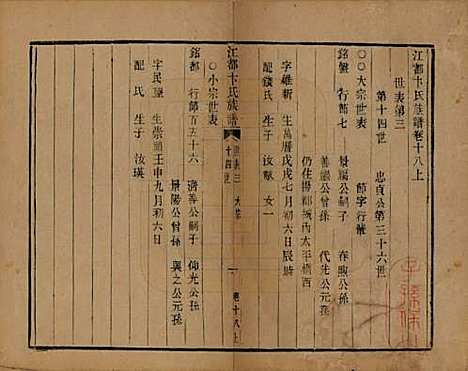 江都卞氏族譜卷十八上
世表第三
第十四世　忠貞公第三十六世
○○大宗世表　節字行派
銘盤　行節七　景福公嗣子　春煦公孫
善義公曾孫　代先公元孫
仍住揚郡城內太平橋西
字維新　生萬曆戊戌七月初六日辰時
配錢氏　生子　汝　女一
江都卞氏族譜　世表三　大宗　十四世　一　卷十八上
○小宗世表
銘都　行節百五十六　濟善公嗣子　仰光公孫
景陽公曾孫　與之公元孫
字民重　生崇禎壬申九月初六日
配　氏　生子　汝瑛